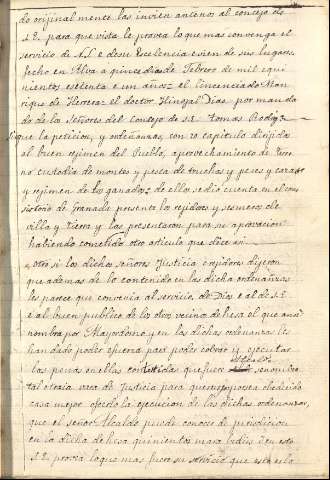 do orijinalmente las invien antenos al concejo de
S.E. para que vista le provea lo que mas convenga el
servicio de S.E. e dem Escelencia e vien de sus lugares
fecho en Alva a quince dias de Febrero de mil equi
nientos esetenta e un años: el Lincenciado Man
rique de Herrera: el doctor Hinojal Dias: por manda
do de lo Señores del Consejo de S.E. Tomas Rodrigz
Sigue la peticion, y ordenanzas, con 10 capitulo dirijida
al buen rejimen del Pueblo, aprovechamiento de terre
no custodia de montes y pesca de truchas y peces y caza
y rejimen de lo ganados; de ello se dio cuenta en el con
sistorio de Granada presente lo rejidores y sesmeros de
villa y tierra y los presentaron para su aprovacion
habiendo cometido otro articulo que dice asi
Otro si los dichos señores Justicia e rejidores dijeron
que ademas de lo contenido en las dicha ordenanzas
les parece que convenia al servicio de Dios e al de S.E
e al buen publico de los dros vecino de hesa el que ana
nombra por Mayordomo, y en las dichas ordenanzas le
han dado poder efuerza para poder cobrar y ejecutar
las penas en ellas contenidas que fuere Alcalde senombre
tal e traia vara de Justicia para que sea obedecido
casa mejor efecto la ejecucion de las dichas ordenanzas,
que el señor Alcalde puede conocer de jurisdicion
en la dicha dehesa quinientos maravedis V en esto
S.E. provea lo que mas fuere su servicio que esta es lo